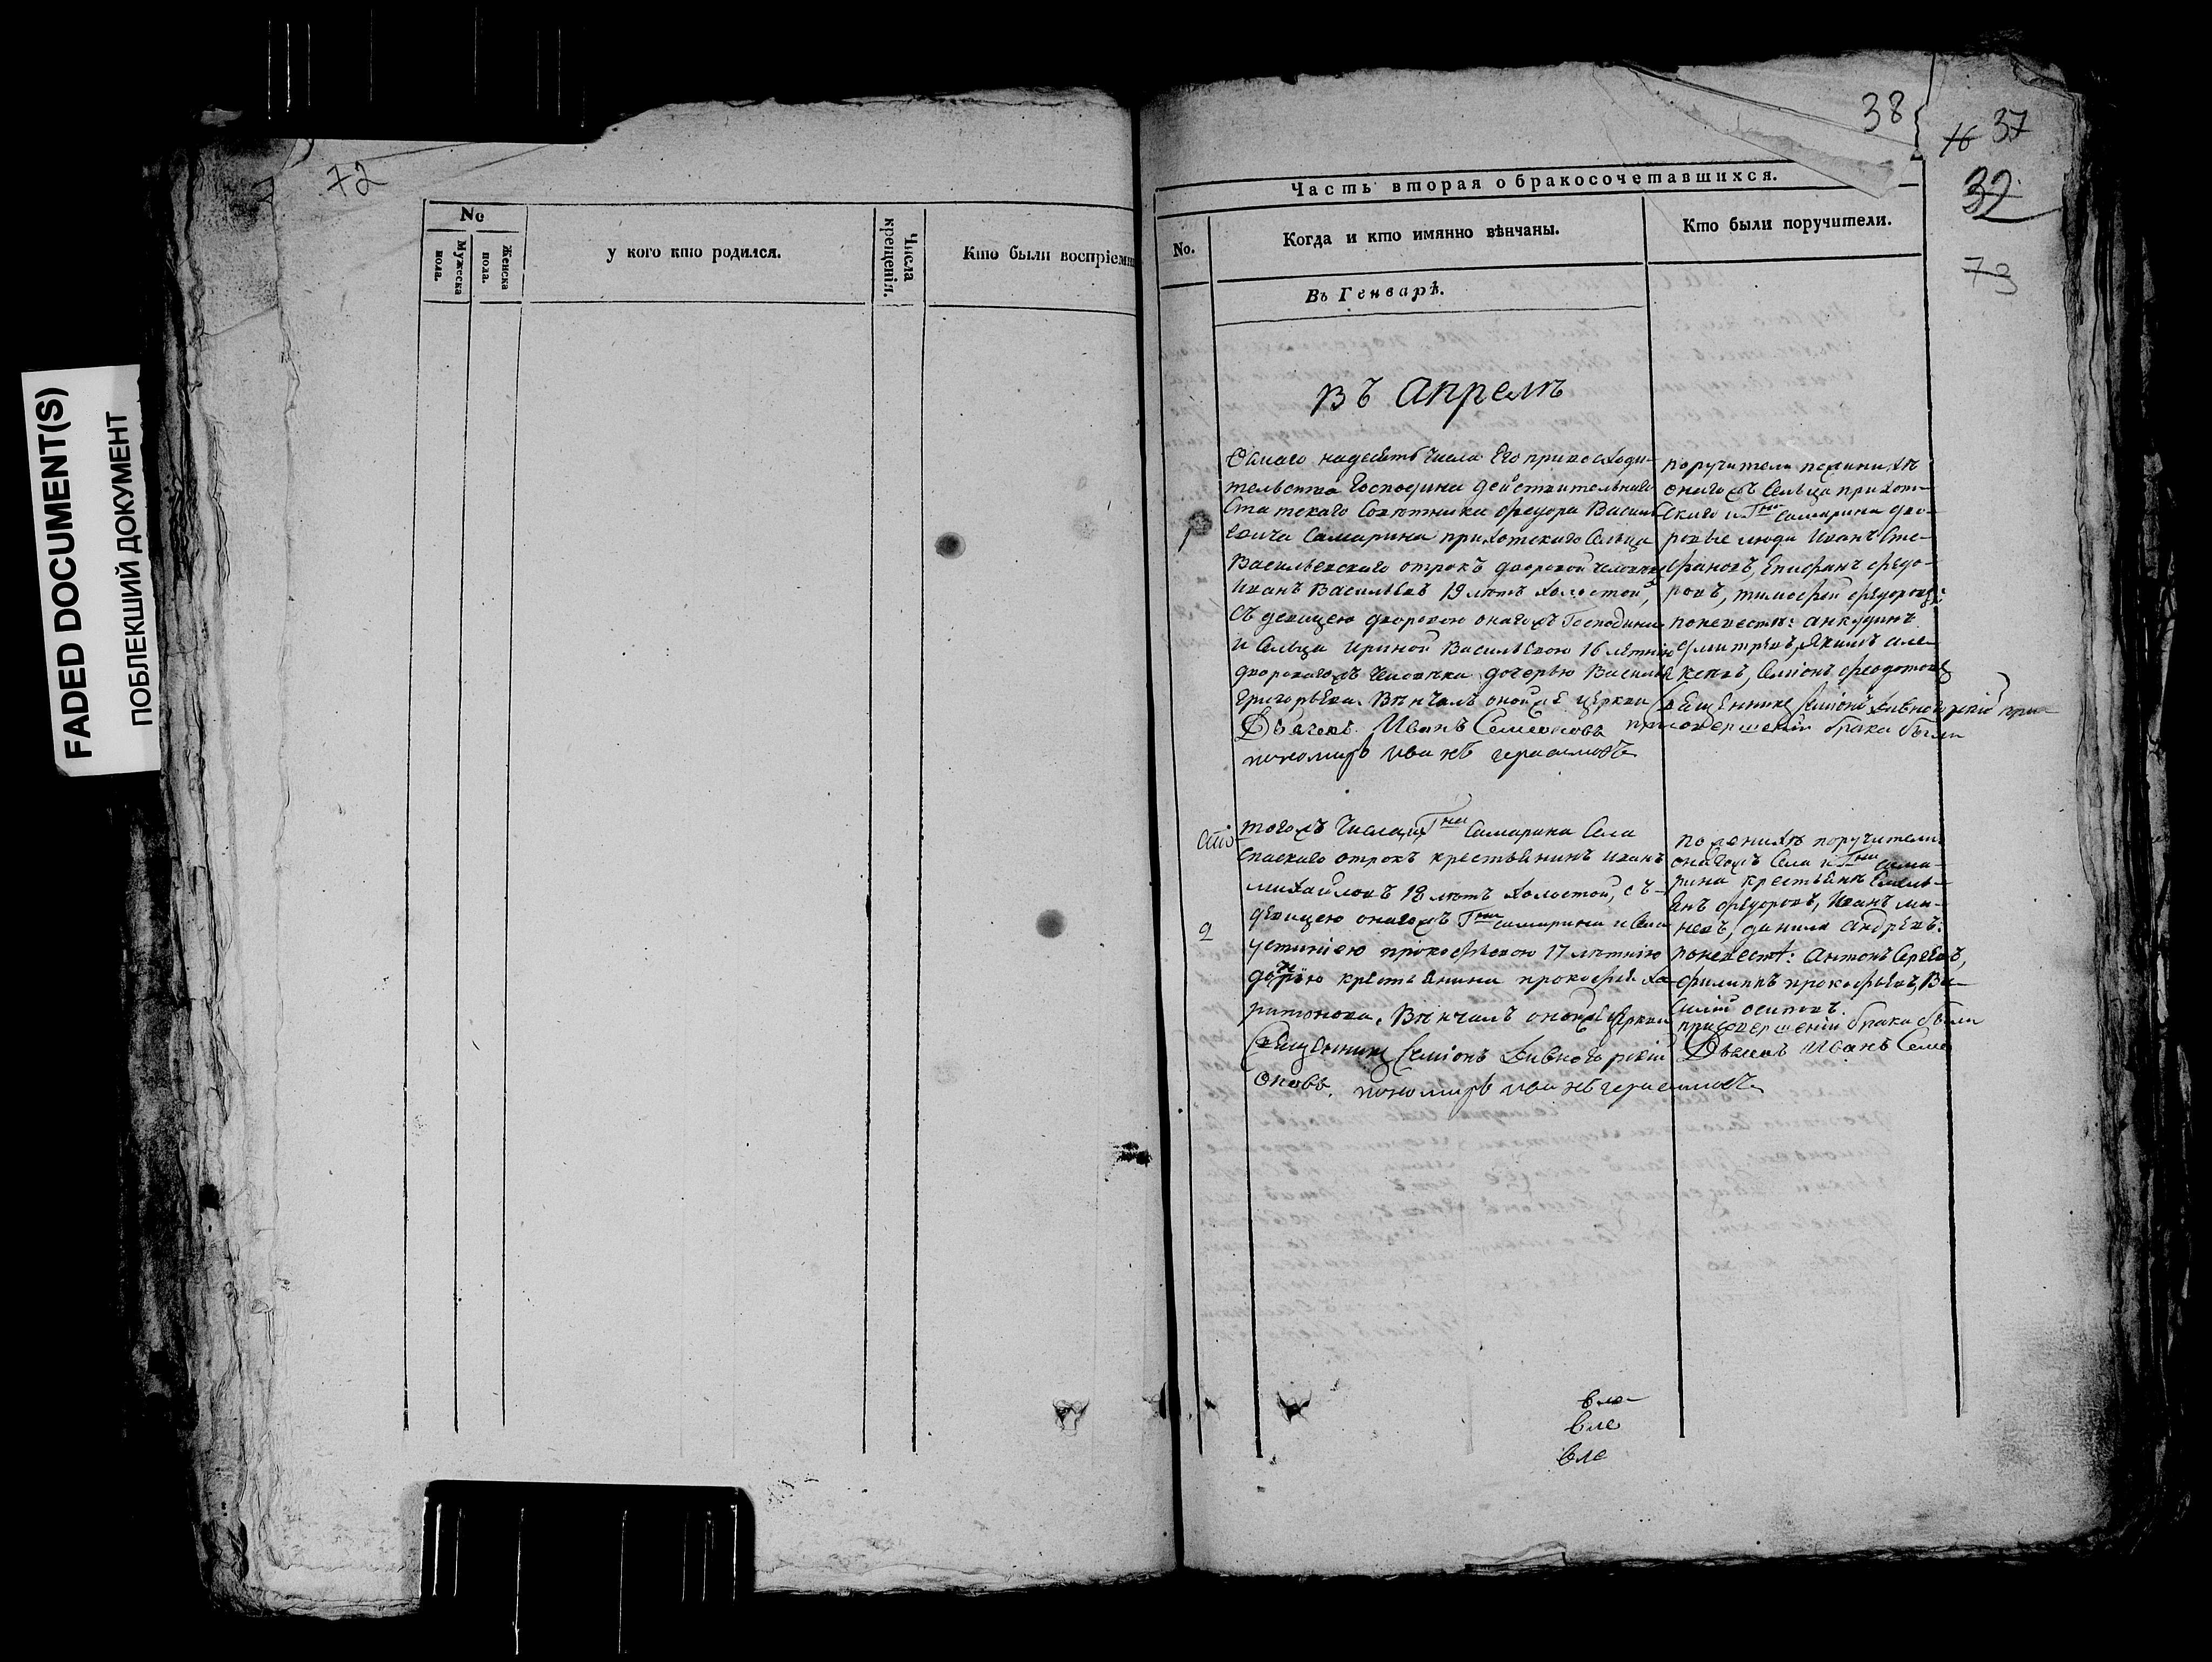 FADED DOCUMENT(S)
ПОБЛЕКШИЙ ДОКУМЕНТ
72
No
Мужеска пола.
Женска пола.
у кого кто родился.
Числа крещенія.
Кто были воспріемн
38
37
32
73
Часть вторая о бракосочетавшихся.
No.
Когда и кто имянно вѣнчаны.
Кто были поручители.
Въ Генварѣ.
въ апрелѣ
1
надесять числа Его привосходи-
тельства Господина действительнаго
Статскаго Советника Федора Василь
евича Самарина приходскаго Сельца
Васильевскаго отрокъ дворовой человекъ
Иванъ Васильевъ 19 летъ холостой,
съ девицею дворовою онагожъ Господина
и Сельца Ириной Васильевою 16 летнию
двороваго жъ человека дочерью Василья
Григорьева. Венчалъ оной же церкви
Священникъ Симіонъ при
Дьячекъ Иванъ Семеновъ
пономарь иванъ герасимовъ
поручители по женихе
онагожъ Сельца приход-
скаго и Гна самарина дво-
ровые люди Иванъ Сте-
фановъ, Епифанъ федо-
ровъ, тимофей федоровъ:
поневесте: анкудинъ
дмитревъ, Якимъ але-
ксевъ, Симіонъ феодотовъ
при совершеніи брака были
2
тогожъ числа, Гна Самарина Села
Спаскаго отрокъ крестьянинъ иванъ
михайловъ 18 летъ холостой, съ-
девицею онагожъ Гна самарина и Села
устиніею прокофьевою 17 летнию
дочерью крестьянина прокофья ха-
ритонова. Венчалъ оной же церкви
Священникъ Симіонъ
оновъ. пономарь иванъ герасимовъ
по женихе поручители
онагожъ Села и Гна сама-
рина крестьяне Емель-
янъ федоровъ, Иванъ ми-
невъ, данила андревъ:
поневесте: Антонъ Сергевъ,
филиппъ прокофьевъ, Ва-
силій осиповъ.
при совершеніи брака были
Дьячекъ Иванъ Семе